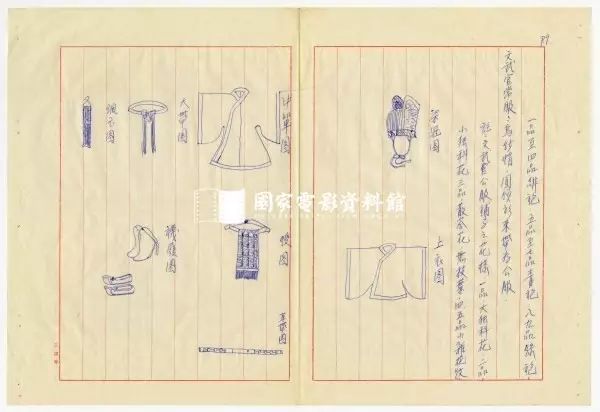 89
一品至四品緋袍 五品至七品青袍 八九品綠袍
文武官常服：烏紗帽、圓領衫束帶為公服。
註：文武官公服補子之花樣 一品大獨科花，二品
小獨科花 三品散答花 無枝葉，四五品小雜花紋
梁冠圖
上衣圖
中單圖
大帶圖
佩玉圖
綬圖
襪履圖
革帶圖
國家電影資料館